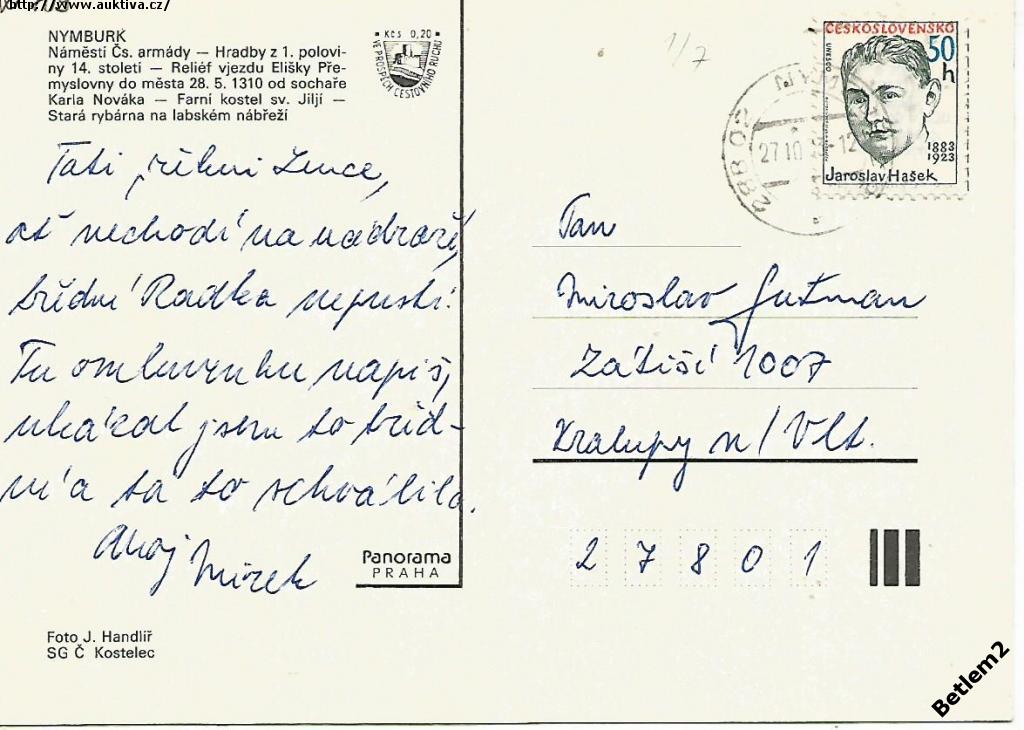 http://www.auktiva.cz/
NYMBURK
Náměstí Čs. armády — Hradby z 1. polovi-
ny 14. století — Reliéf vjezdu Elišky Pře-
myslovny do města 28. 5. 1310 od sochaře
Karla Nováka — Farní kostel sv. Jiljí —
Stará rybárna na labském nábřeží
Kčs 0,20
VE PROSPĚCH CESTOVNÍHO RUCHU
1/7
ČESKOSLOVENSKO
50
h
UNESCO
1883
1923
Jaroslav Hašek
288 02
27.10
-12
Tati řekni Lence,
ať nechodí na nádraží,
třídní Radka nepustí.
Tu omluvenku napiš,
ukázal jsem to tříd-
ní a ta to schválila.
Ahoj Mirek
Pan
Miroslav Gutman
Zátiší 1007
Kralupy n/Vlt.
27801
Panorama
PRAHA
Foto J. Handlíř
SG Č Kostelec
Betlem2